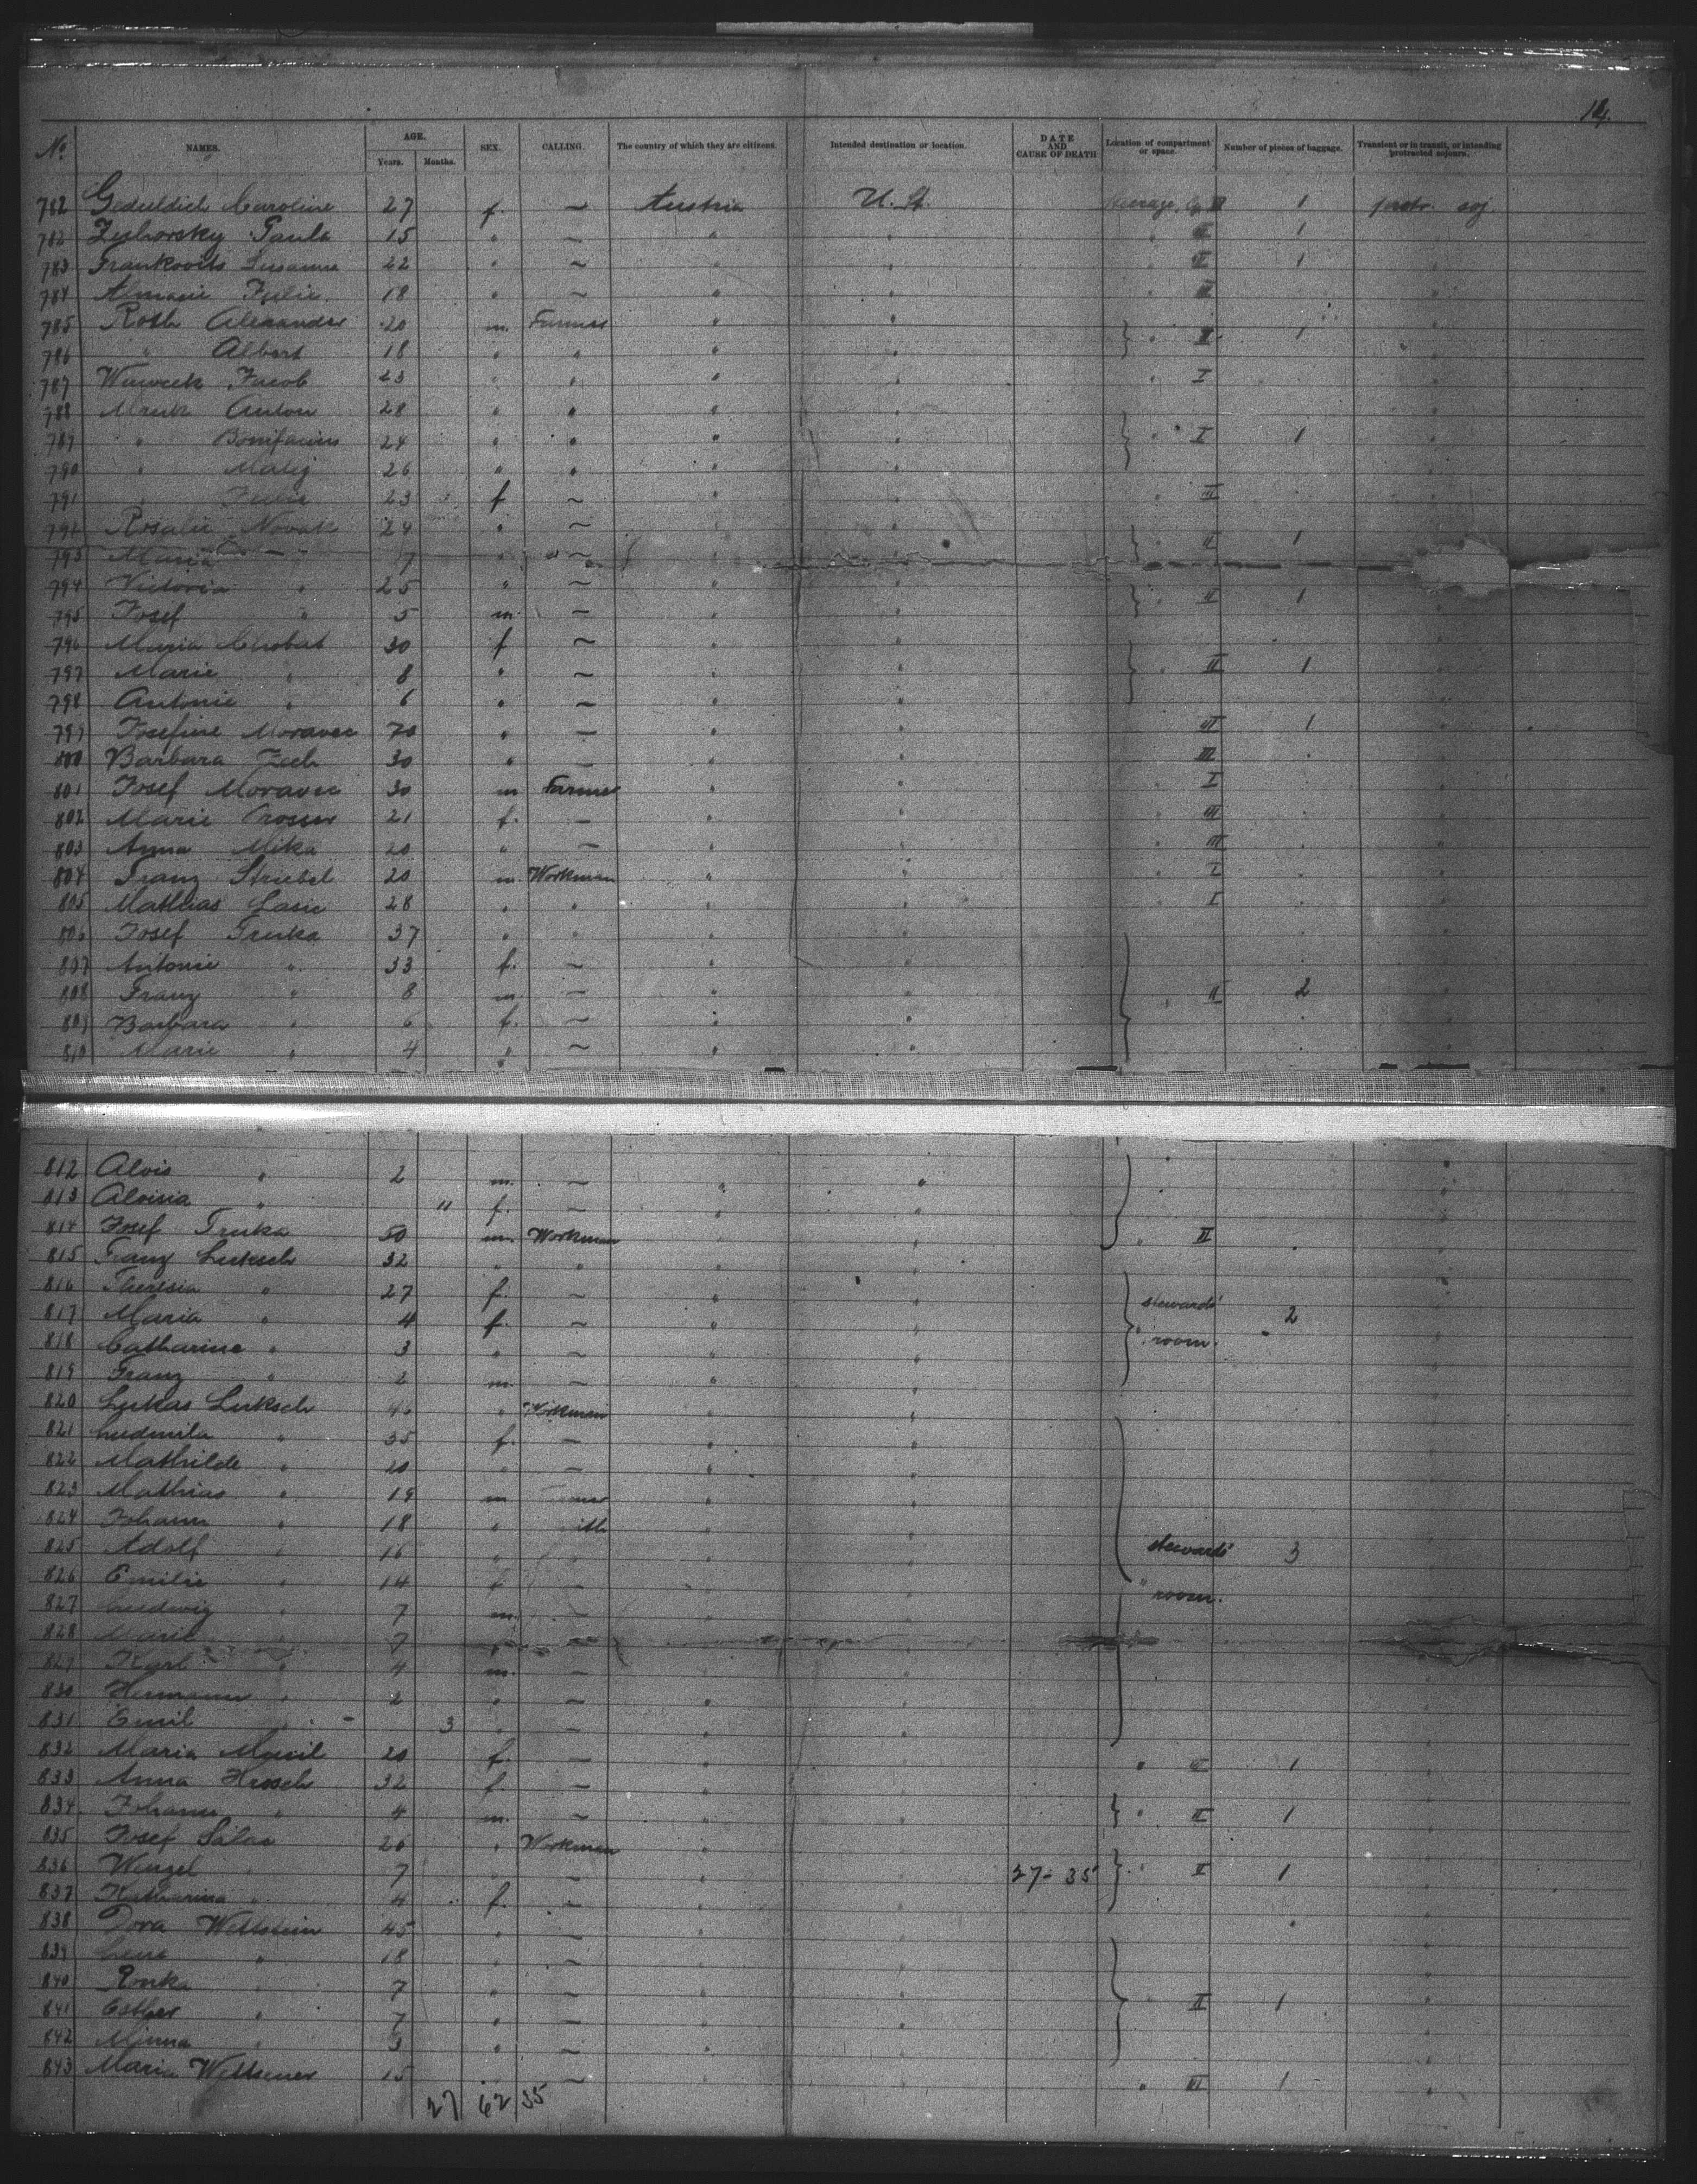 14.
No. NAMES. AGE. Years. Months. SEX. CALLING. The country of which they are citizens. Intended destination or location. DATE AND CAUSE OF DEATH Location of compartment or space. Number of pieces of baggage. Transient or in transit, or intending protracted sojourn.
782 Geduldich Caroline 27 f. ~ Austria U. St. Steerage, II 1 protr. soj
782 Paula 15 " ~ " " " II 1 "
783 Frankovits Susanna 22 " ~ " " " II 1 "
784 18 " ~ " " " II "
785 Roth Alexander 20 m. Farmer " " " II 1 "
786 " Albert 18 " " " " "
787 Jacob 23 " " " " " I "
788 Mruk Anton 28 " " " " "
789 " Bonifacius 24 " " " " " I 1 "
790 " 26 " " " " "
791 " Julie 23 f ~ " " " II "
792 Rosalie Novak 24 " ~ " " " II 1
793 Maria " 7 " ~ " "
794 Victoria " 25 " ~ " " " II 1 "
795 Josef " 5 m. ~ " " "
796 Maria Chrobat 30 f ~ " " "
797 Marie " 8 " ~ " " " II 1 "
798 Antonie " 6 " ~ " " "
799 Josefine Moravec 70 " ~ " " III 1 "
800 Barbara Zech 30 " ~ " " " III "
801 Josef Moravec 30 m Farmer " " " I "
802 Marie 21 f. ~ " " " III "
803 Anna Mika 20 " ~ " " " III "
804 Franz Striebel 20 m. Workman " " " I "
805 Mathias Lasic 28 " " " " " I "
806 Josef Truka 37 " " " " "
807 Antonie " 33 f. ~ " " "
808 Franz " 8 m. ~ " " " II 2 "
809 Barbara " 6 f. ~ " " "
810 Marie " 4 " ~ " " "
812 Alois " 2 m. ~ " " "
813 Aloisia " 11 f. ~ " " "
814 Josef Truka 50 m. Workman " " " II "
815 Franz Luksch 32 " " " " "
816 Theresia " 27 f. ~ " " "
817 Maria " 4 f. ~ " " stewards' 2 "
818 Catharine " 3 " ~ " " " room. "
819 Franz " 2 m. ~ " " "
820 Lukas Luksch " Workman " " "
821 Ludmila " 35 f. ~ " " "
822 Mathilde " 20 " ~ " " "
823 Mathias " 19 m " " "
824 Johann " 18 " " " "
825 Adolf " 16 " " " " stewards' 3 "
826 Emilie " 14 f ~ " " " room. "
827 Ludwig " 7 m. ~ " " "
828 Marie " 7 ~ "
829 Karl " 4 m. ~ " " "
830 Hermann " 2 " ~ " " "
831 Emil " 3 " ~ " " "
832 Maria 20 f. ~ " " " III 1 "
833 Anna Hrosch 32 f. ~ " " "
834. Johann " 4 m. ~ " " " II 1 "
835 Josef Salac 26 " Workman " " "
836 Wenzel " 7 " ~ " " 27-35 " II 1 "
837 Katharina " 4 f. ~ " " "
838 Dora Wettstein 45 " ~ " " "
839 Lena " 18 " ~ " " "
840 " 7 " ~ " " "
841 Esther " 7 " ~ " " " II 1 "
842 Minna " 3 " ~ " " "
843 Maria 15 ~ " " III 1 "
27 62 35